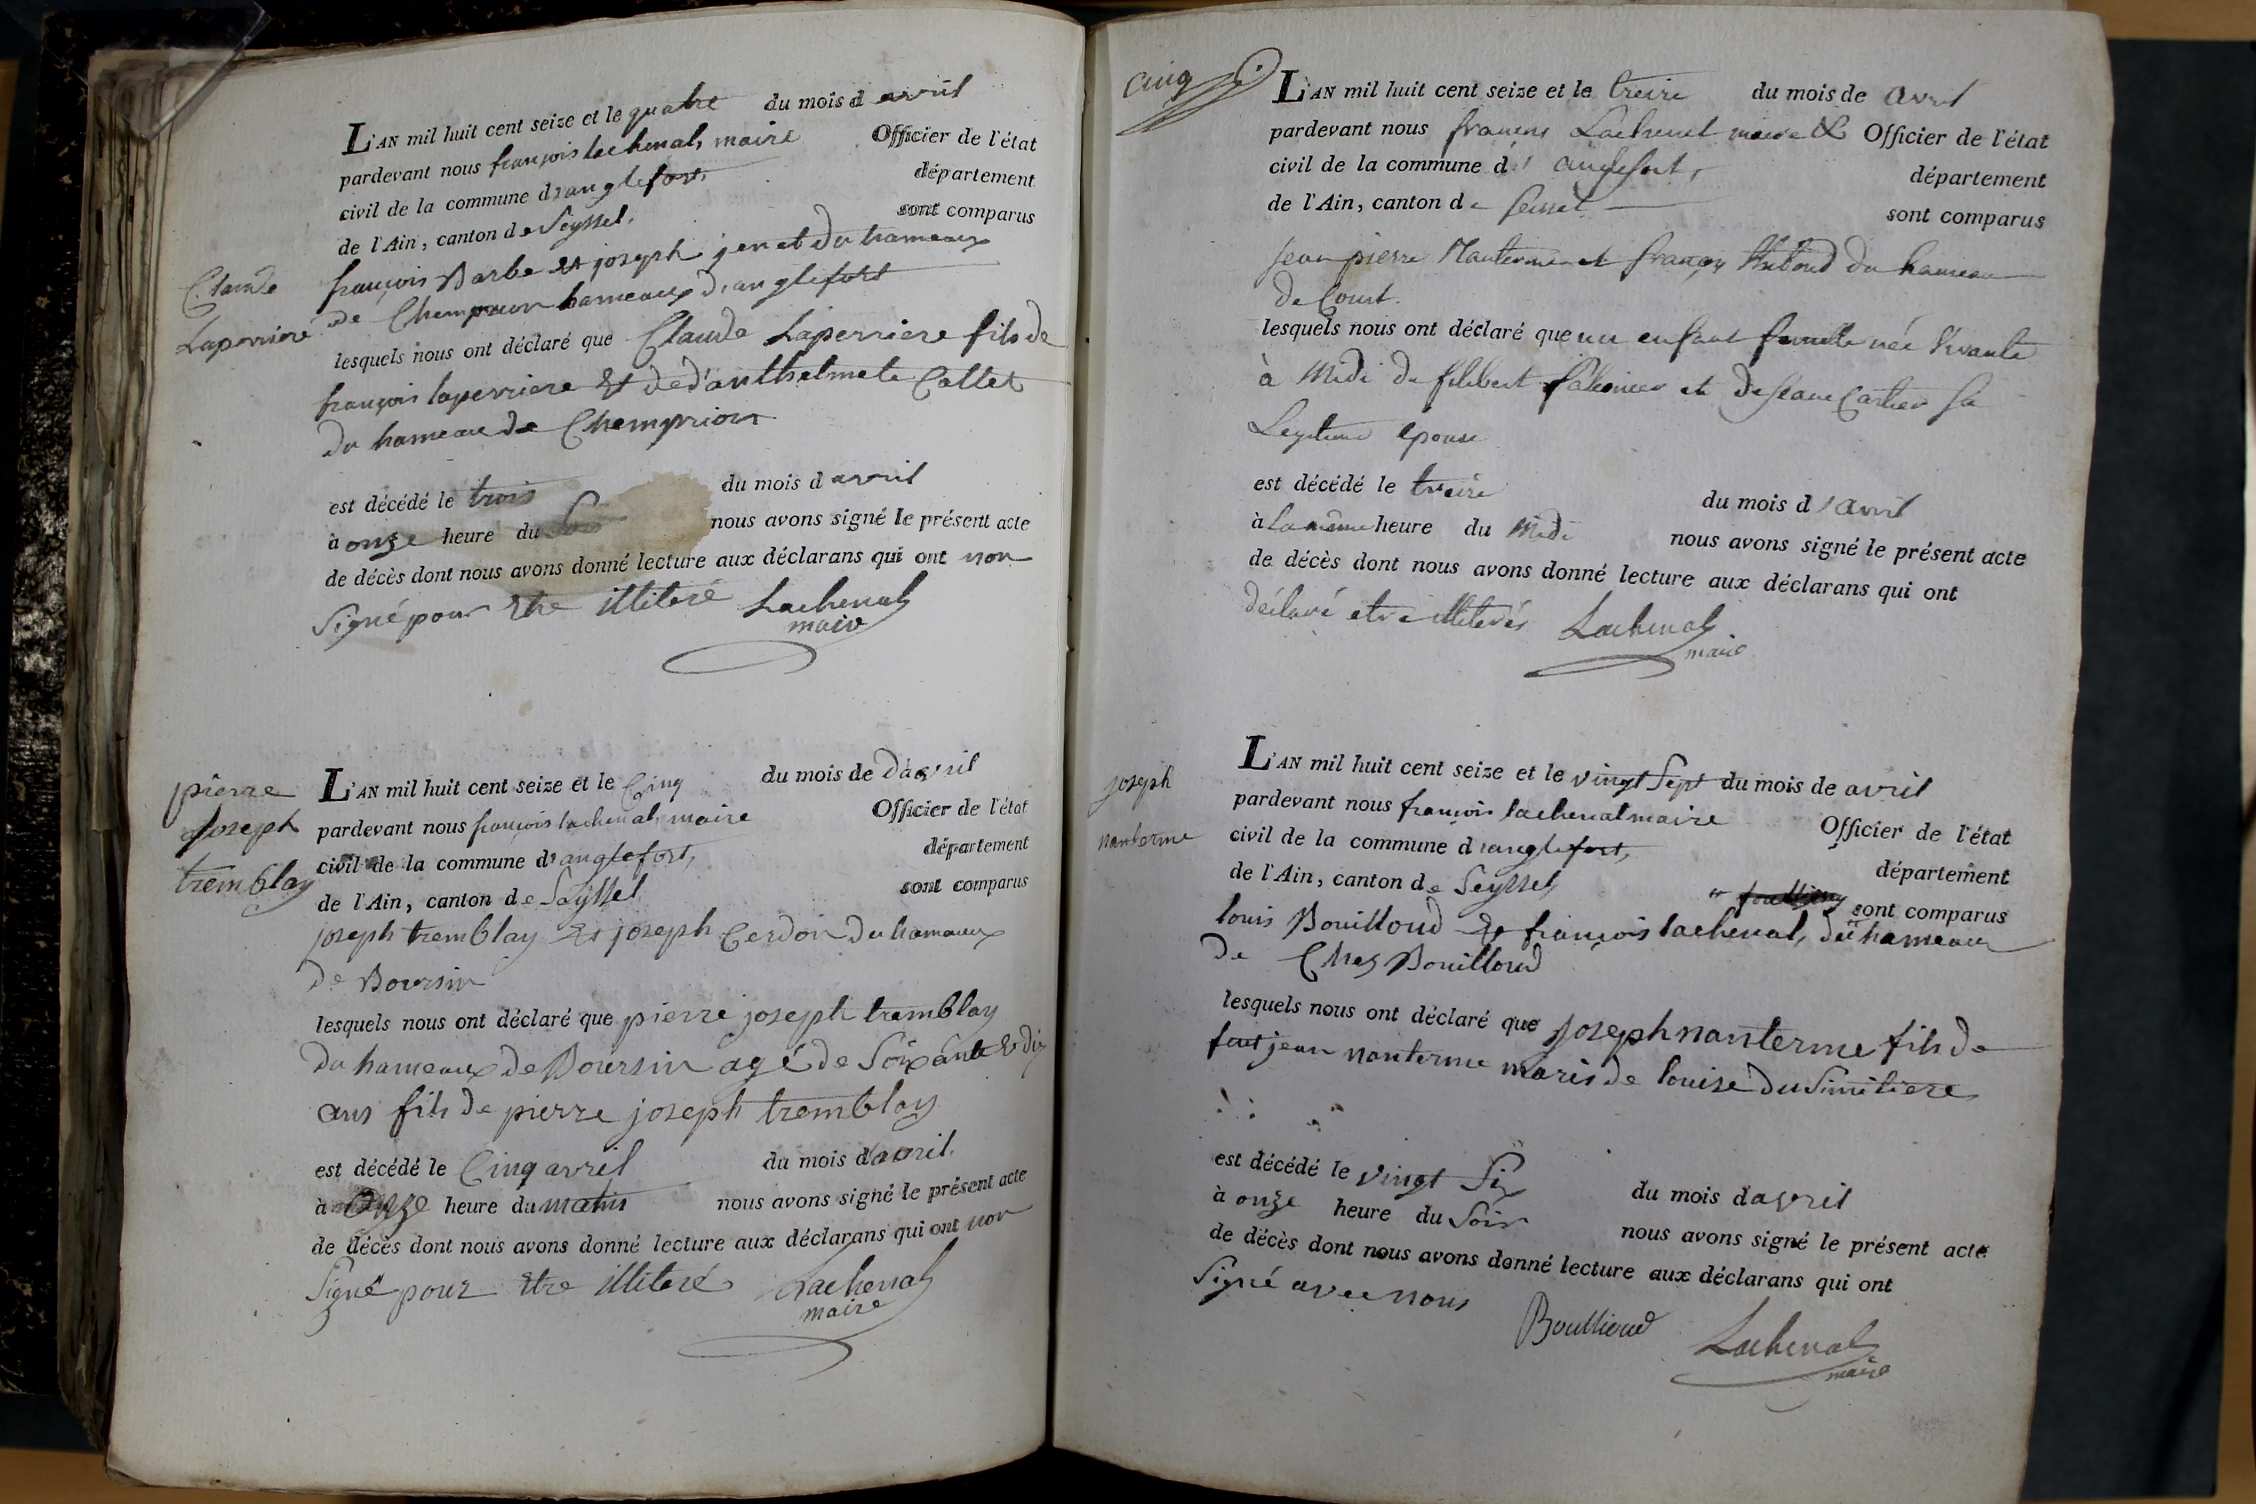 L'AN mil huit cent seize et le quatre du mois d avril
pardevant nous françois lachenal, maire Officier de l'état
civil de la commune d'anglefort, département
de l'Ain, canton de Seyssel. sont comparus
françois Barbe et joseph jenet du hameaux
de Chemprion hameaux d'anglefort
Claude
Laperriere
lesquels nous ont déclaré que Claude Laperriere fils de
françois laperriere et de d'anthelmete Collet
du hameau de Chemprion
est décédé le trois du mois d avril
à onze heure du nous avons signé le présent acte
de décès dont nous avons donné lecture aux déclarans qui ont non
Signé pour Etre illiteré Lachenal
maire
pierre
Joseph
tremblay
L'AN mil huit cent seize et le Cinq du mois de d'avril
pardevant nous françois lachenal, maire Officier de l'état
civil de la commune d'anglefort, département
de l'Ain, canton de Seyssel sont comparus
joseph tremblay Et joseph Cerdon du hameaux
de Boursin
lesquels nous ont déclaré que pierre joseph tremblay
du hameaux de Boursin agé de Soixante & dix
ans fils de pierre joseph tremblay
est décédé le Cinq avril du mois d'avril.
à onze heure du matin nous avons signé le présent acte
de décès dont nous avons donné lecture aux déclarans qui ont non
Signé pour Etre illiteré Lachenal
maire
Cinq
L'AN mil huit cent seize et le treize du mois de avril
pardevant nous françois Lachenal maire & Officier de l'état
civil de la commune d' anglefort, département
de l'Ain, canton de Seissel sont comparus
jean pierre Nanterme et françois du hameau
de Court.
lesquels nous ont déclaré que un enfant femelle née vivante
à Midi de filibert falconier et de jeane Cartier sa
Legitime epouse
est décédé le treize du mois d'avril
à la même heure du Midi nous avons signé le présent acte
de décès dont nous avons donné lecture aux déclarans qui ont
déclaré etre illiterés Lachenal
maire
joseph
nanterme
L'AN mil huit cent seize et le vingt Sept du mois de avril
pardevant nous françois lachenal maire Officier de l'état
civil de la commune d'anglefort, département
de l'Ain, canton de Seyssel sont comparus
louis Bouilloud Et françois lachenal, du hameaux
de Chez Bouilloud
lesquels nous ont déclaré que Joseph nanterme fils de
feut jean nanterme maris de louise du Simitiere
est décédé le vingt Six du mois d'avril
à onze heure du Soir nous avons signé le présent acte
de décès dont nous avons donné lecture aux déclarans qui ont
Signé avec nous
Boullioud Lachenal
maire